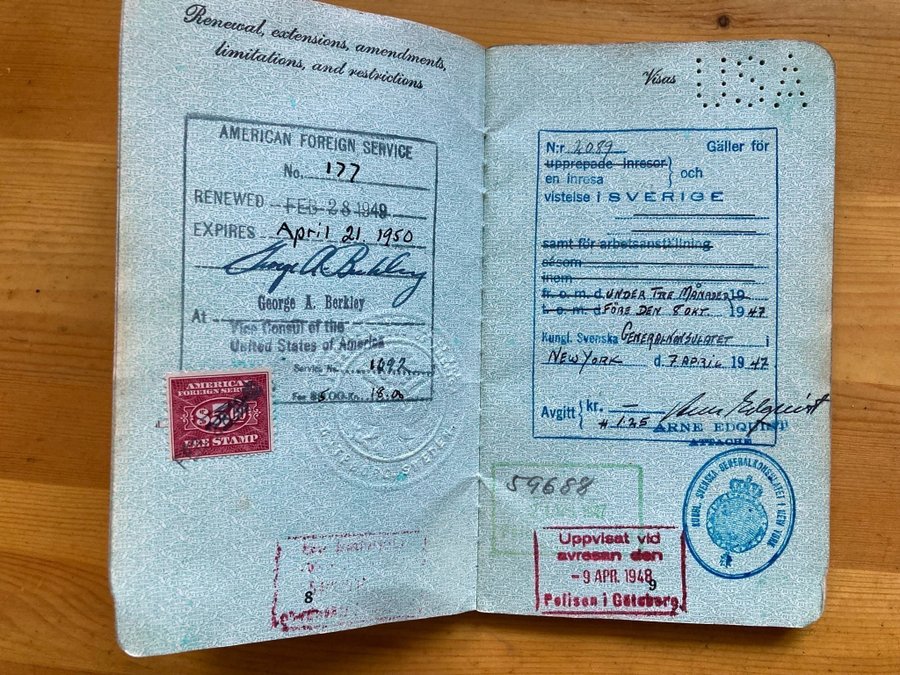 Renewal, extensions, amendments,
limitations, and restrictions
AMERICAN FOREIGN SERVICE
No. 177
RENEWED FEB 28 1949
EXPIRES April 21, 1950
George A. Berkley
George A. Berkley
At
Vice Consul of the
United States of America
Service No. 1092
Fee $5.00-Kr. 18.00
AMERICAN
FOREIGN SERVICE
FEE STAMP
8
Visas
USA
N:r 2089 Gäller för
upprepade inresor
en inresa } och
vistelse i SVERIGE
samt för arbetsanställning
såsom
inom
fr. o. m. d. UNDER TRE MÅNADER 19
t. o. m. d. FÖRE DEN 8 OKT. 1947
Kungl. Svenska GENERALKONSULATET i
NEW YORK d. 7 APRIL 1947
Avgift { kr. –
1.25
Arne Edquist
ARNE EDQUIST
ATTACHÉ
KUNGL. SVENSKA GENERALKONSULATET I NEW YORK
59688
Uppvisat vid
avresan den
- 9 APR. 1948
Polisen i Göteborg
9